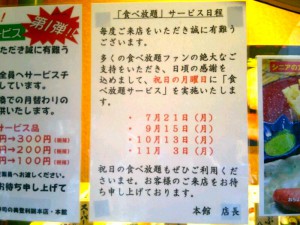 第1弾!
ービス
ただき誠に有難う
全員へサービスチ
しています。
での月替わりの
供
サービス品
→300円
→200円
→100円
お待ち申し上げて
「食べ放題」サービス日程
毎度ご来店をいただき誠に有難う
ございます。
多くの食べ放題ファンの絶大なご
支持をいただき、日頃の感謝を
込めまして、祝日の月曜日に「食
べ放題サービス」を実施いたしま
す。
・ 7月21日(月)
・ 9月15日(月)
・10月13日(月)
・11月 3日(月)
祝日の食べ放題もぜひご利用く
ださいませ。お客様のご来店をお待
ち申し上げております。
本館 店長
シニアの